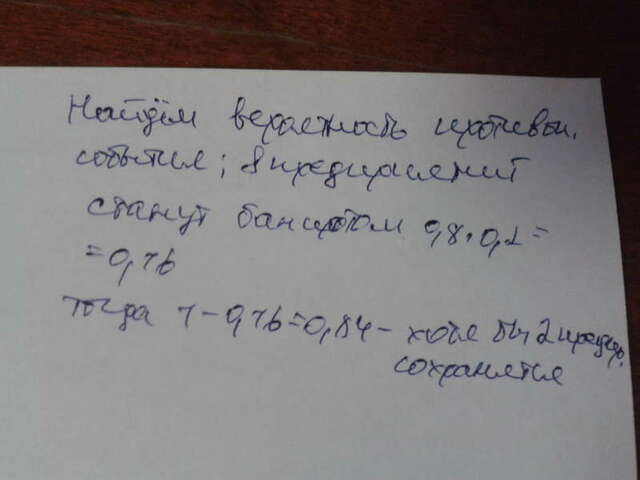 Найдём вероятность противоп.
события; 8 предприятий
станут банкротом 0,8·0,2=
=0,16
тогда 1-0,16=0,84- хотя бы 2 предпр.
сохранятся